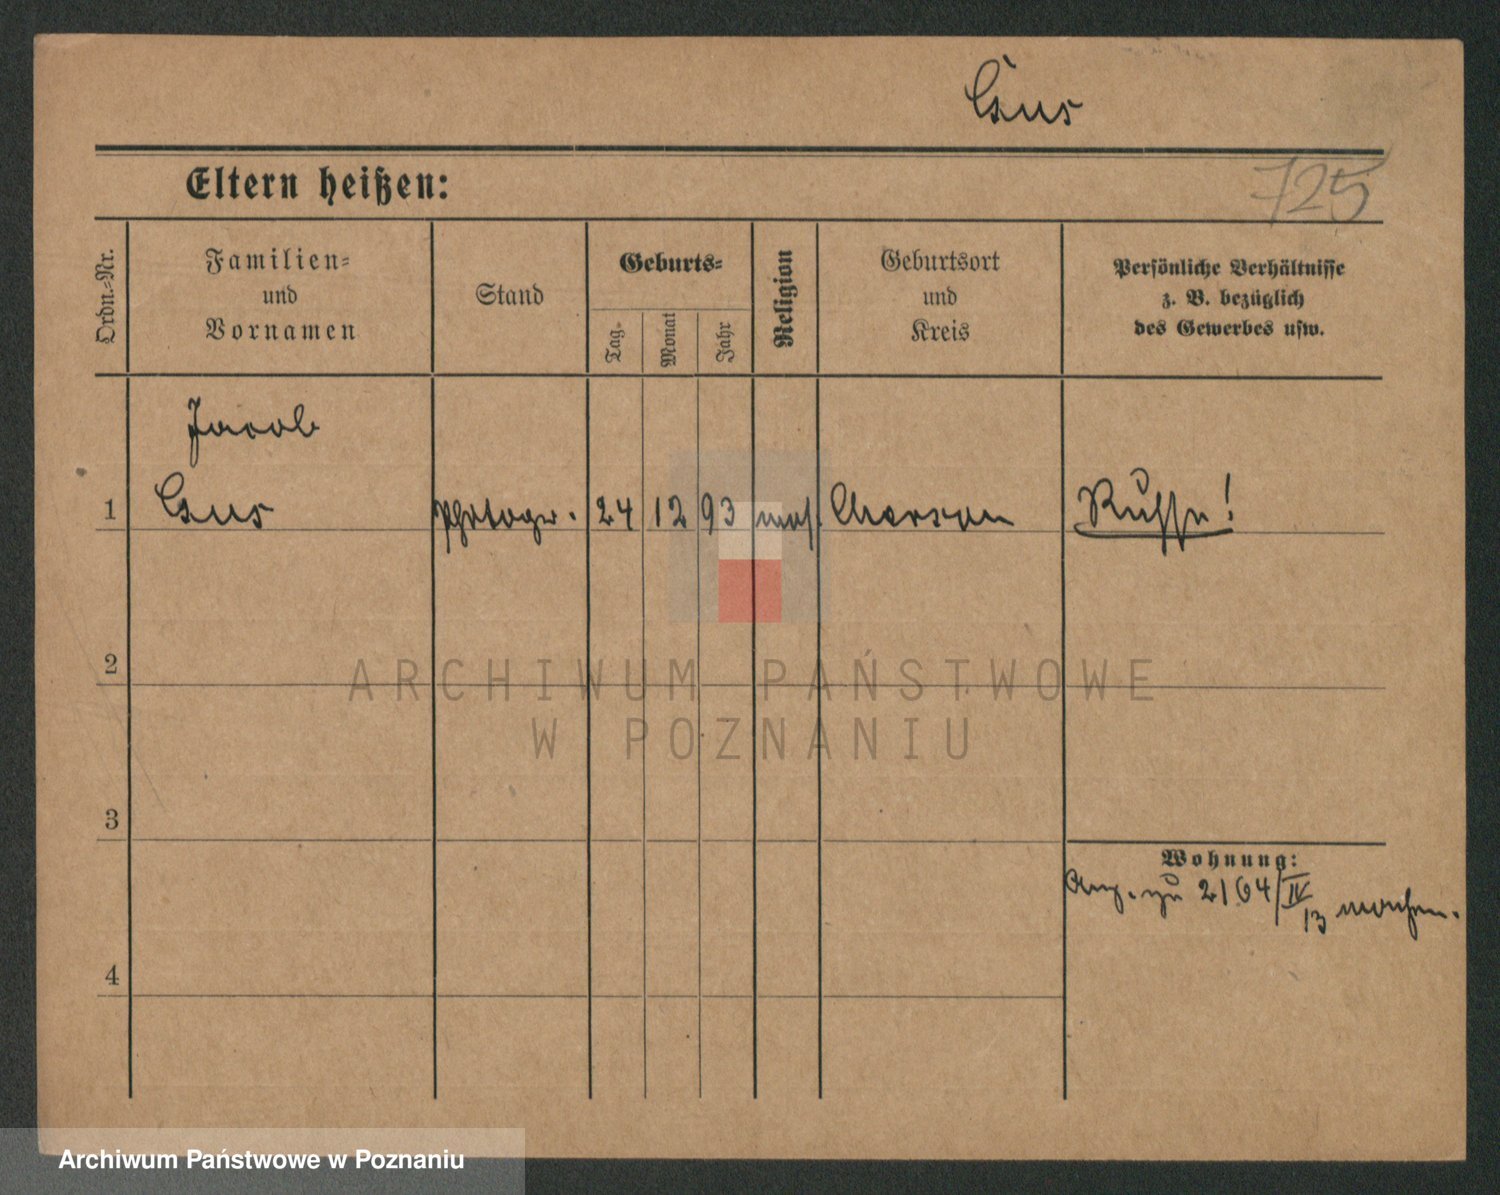 Gus
Eltern heißen:
725
Ordn.-Nr.
Familien-
und
Vornamen
Stand
Geburts-
Tag-
Monat
Jahr
Religion
Geburtsort
und
Kreis
Persönliche Verhältnisse
z. B. bezüglich
des Gewerbes usw.
Jacob
1 Gus Photogr. 24 12 93 mos. Cherson Russe!
ARCHIWUM PAŃSTWOWE
W POZNANIU
2
3
Wohnung:
Anz. zu 2164/IV
13 machen.
4
Archiwum Państwowe w Poznaniu